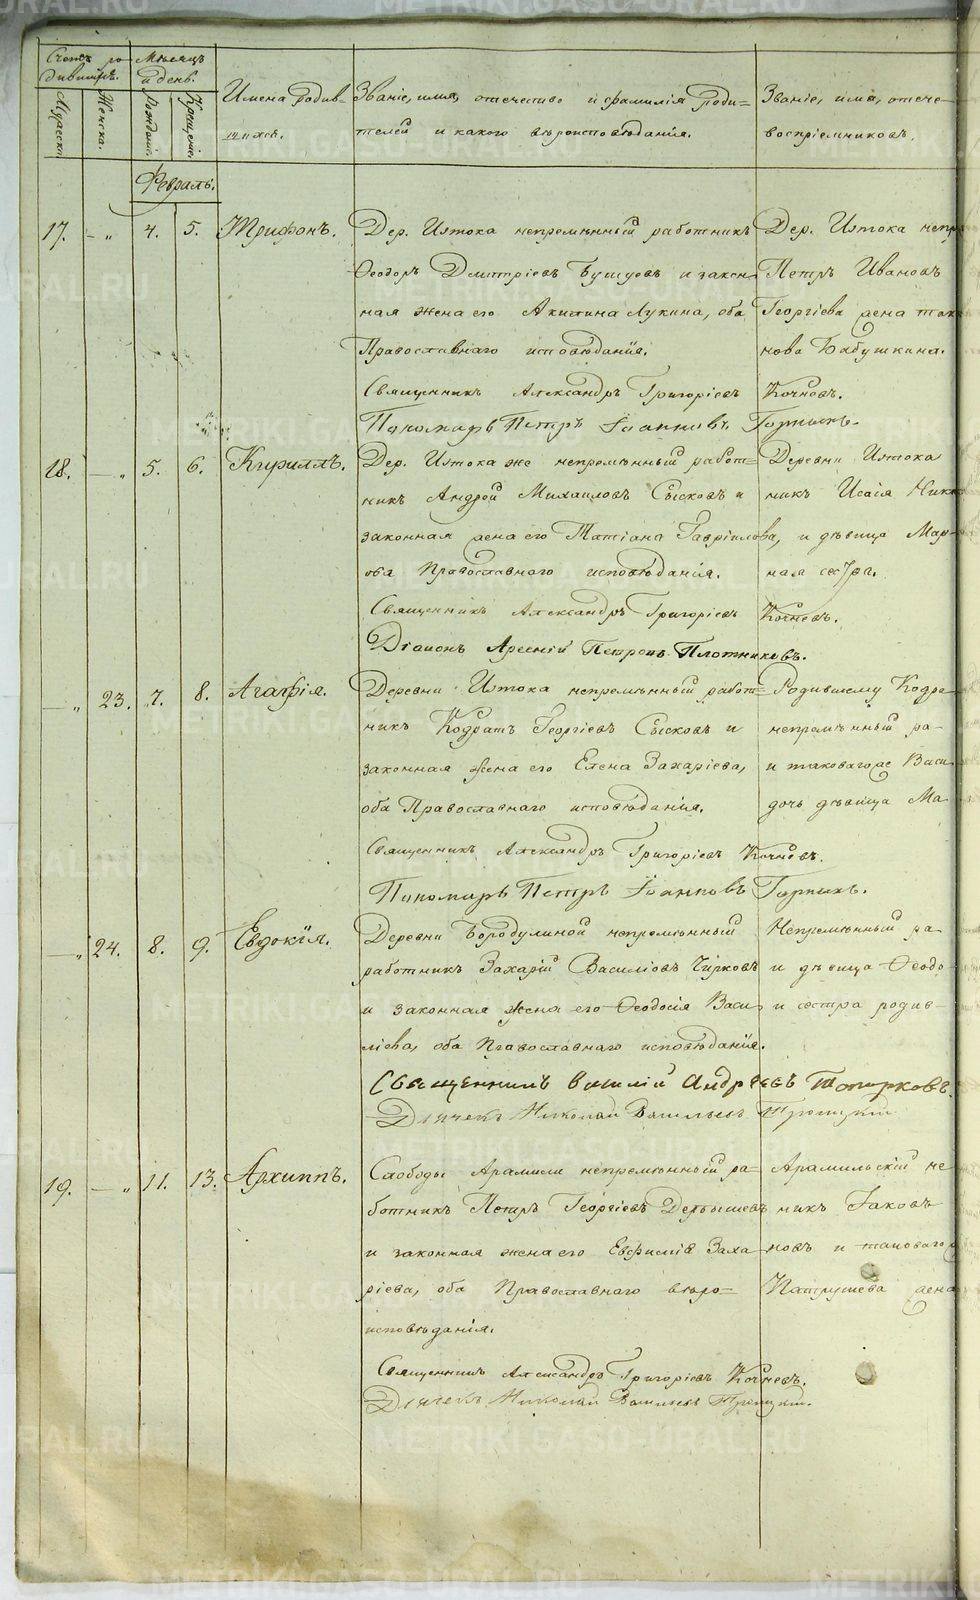 Счетъ ро-
дившихъ.
Мѣсяцъ
и день.
Мужеска.
Женска.
Рожденiе.
Крещенiе.
Имена родив-
шихся.
Званiе, имя, отечество и фамилiя роди-
телей и какого вѣроисповѣданiя.
Званiе, имя, отече-
воспрiемниковъ.
Февраль.
17. - „ 4. 5. Трифонъ.
Дер. Истока непремѣнный работникъ
Ѳеодоръ Дмитрiевъ Бушуевъ и закон-
ная жена его Акилина Лукина, оба
Православнаго исповѣданiя.
Священникъ Александръ Григорiевъ Кочневъ.
Пономарь Петръ Iоанновъ Горныхъ.
Дер. Истока непр
Петръ Ивановъ
Георгiева жена так
нова Бабушкина.
18. - „ 5. 6. Кириллъ.
Дер. Истока же непремѣнный работ-
никъ Андрей Михаиловъ Сысковъ и
законная жена его Татiана Гаврiилова,
оба Православнаго исповѣданiя.
Священникъ Александръ Григорiевъ Кочневъ.
Дiаконъ Арсенiй Петровъ Плотниковъ.
Деревни Истока
никъ Исаiя Ник
и дѣвица Мар-
ная сестра.
- „ 23. 7. 8. Агафiя.
Деревни Истока непремѣнный работ-
никъ Кодратъ Георгiевъ Сысковъ и
законная жена его Елена Захарiева,
оба Православнаго исповѣданiя.
Священникъ Александръ Григорiевъ Кочневъ.
Пономарь Петръ Iоанновъ Горныхъ.
Родившему Кодра
непремѣнный ра-
и таковагоже Васи
дочь дѣвица Ма
- „ 24. 8. 9. Евдокiя.
Деревни Бородулиной непремѣнный
работникъ Захарiй Василiевъ Чирковъ
и законная жена его Ѳеодосiя Васи-
лiева, оба Православнаго исповѣданiя.
Священникъ Василiй Андреевъ Топорковъ.
Дьячекъ Николай Васильевъ Троицкiй
Непремѣнный ра-
и дѣвица Ѳеодо-
и сестра родив-
19. - „ 11. 13. Архиппъ.
Слободы Арамили непремѣнный ра-
ботникъ Петръ Георгiевъ Дерышевъ
и законная жена его Евфимiя Заха-
рiева, оба Православнаго вѣро-
исповѣданiя.
Священникъ Александръ Григорiевъ Кочневъ.
Дьячекъ Николай Васильевъ Троицкiй.
Арамильскiй не
никъ Iаковъ
новъ и таковаго
Патрушева жена
METRIKI.GASO-URAL.RU